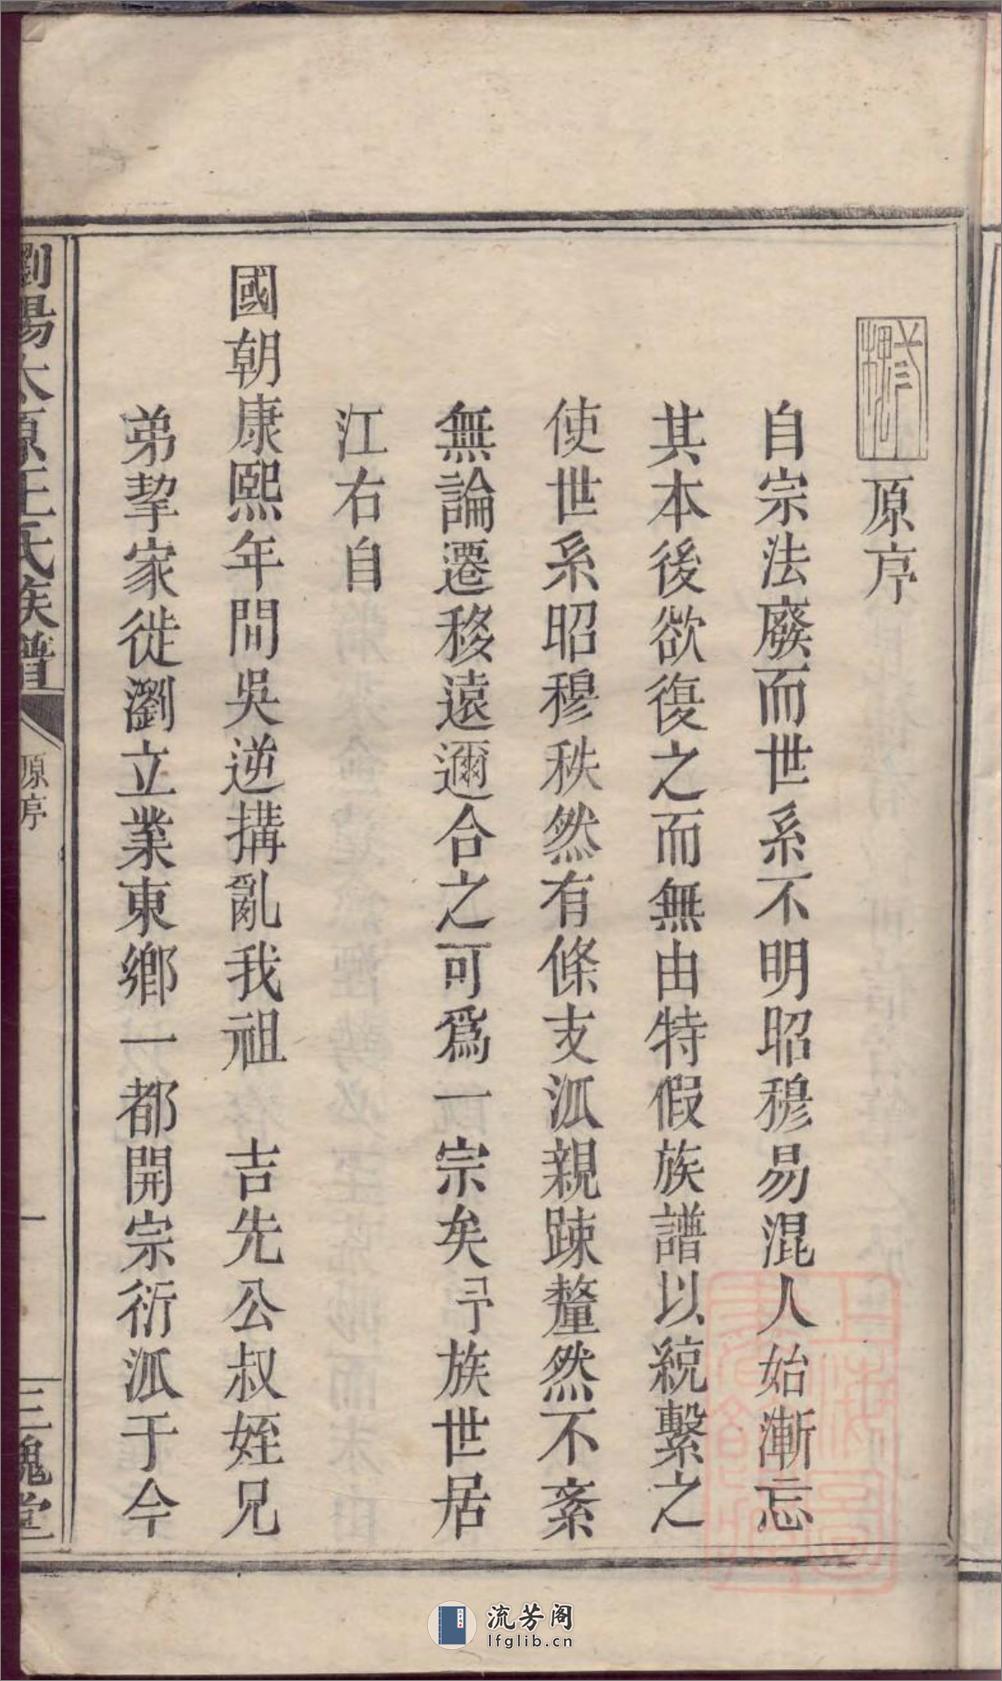 原序
自宗法廢而世系不明昭穆易混人始漸忘
其本後欲復之而無由特假族譜以統繫之
使世系昭穆秩然有條支泒親踈釐然不紊
無論遷移遠邇合之可爲一宗矣予族世居
江右自
國朝康熙年間吳逆搆亂我祖　吉先公叔姪兄
弟挈家徙瀏立業東鄉一都開宗衍泒于今
瀏陽太原王氏族譜
原序
一
三槐堂
流芳阁
lfglib.cn